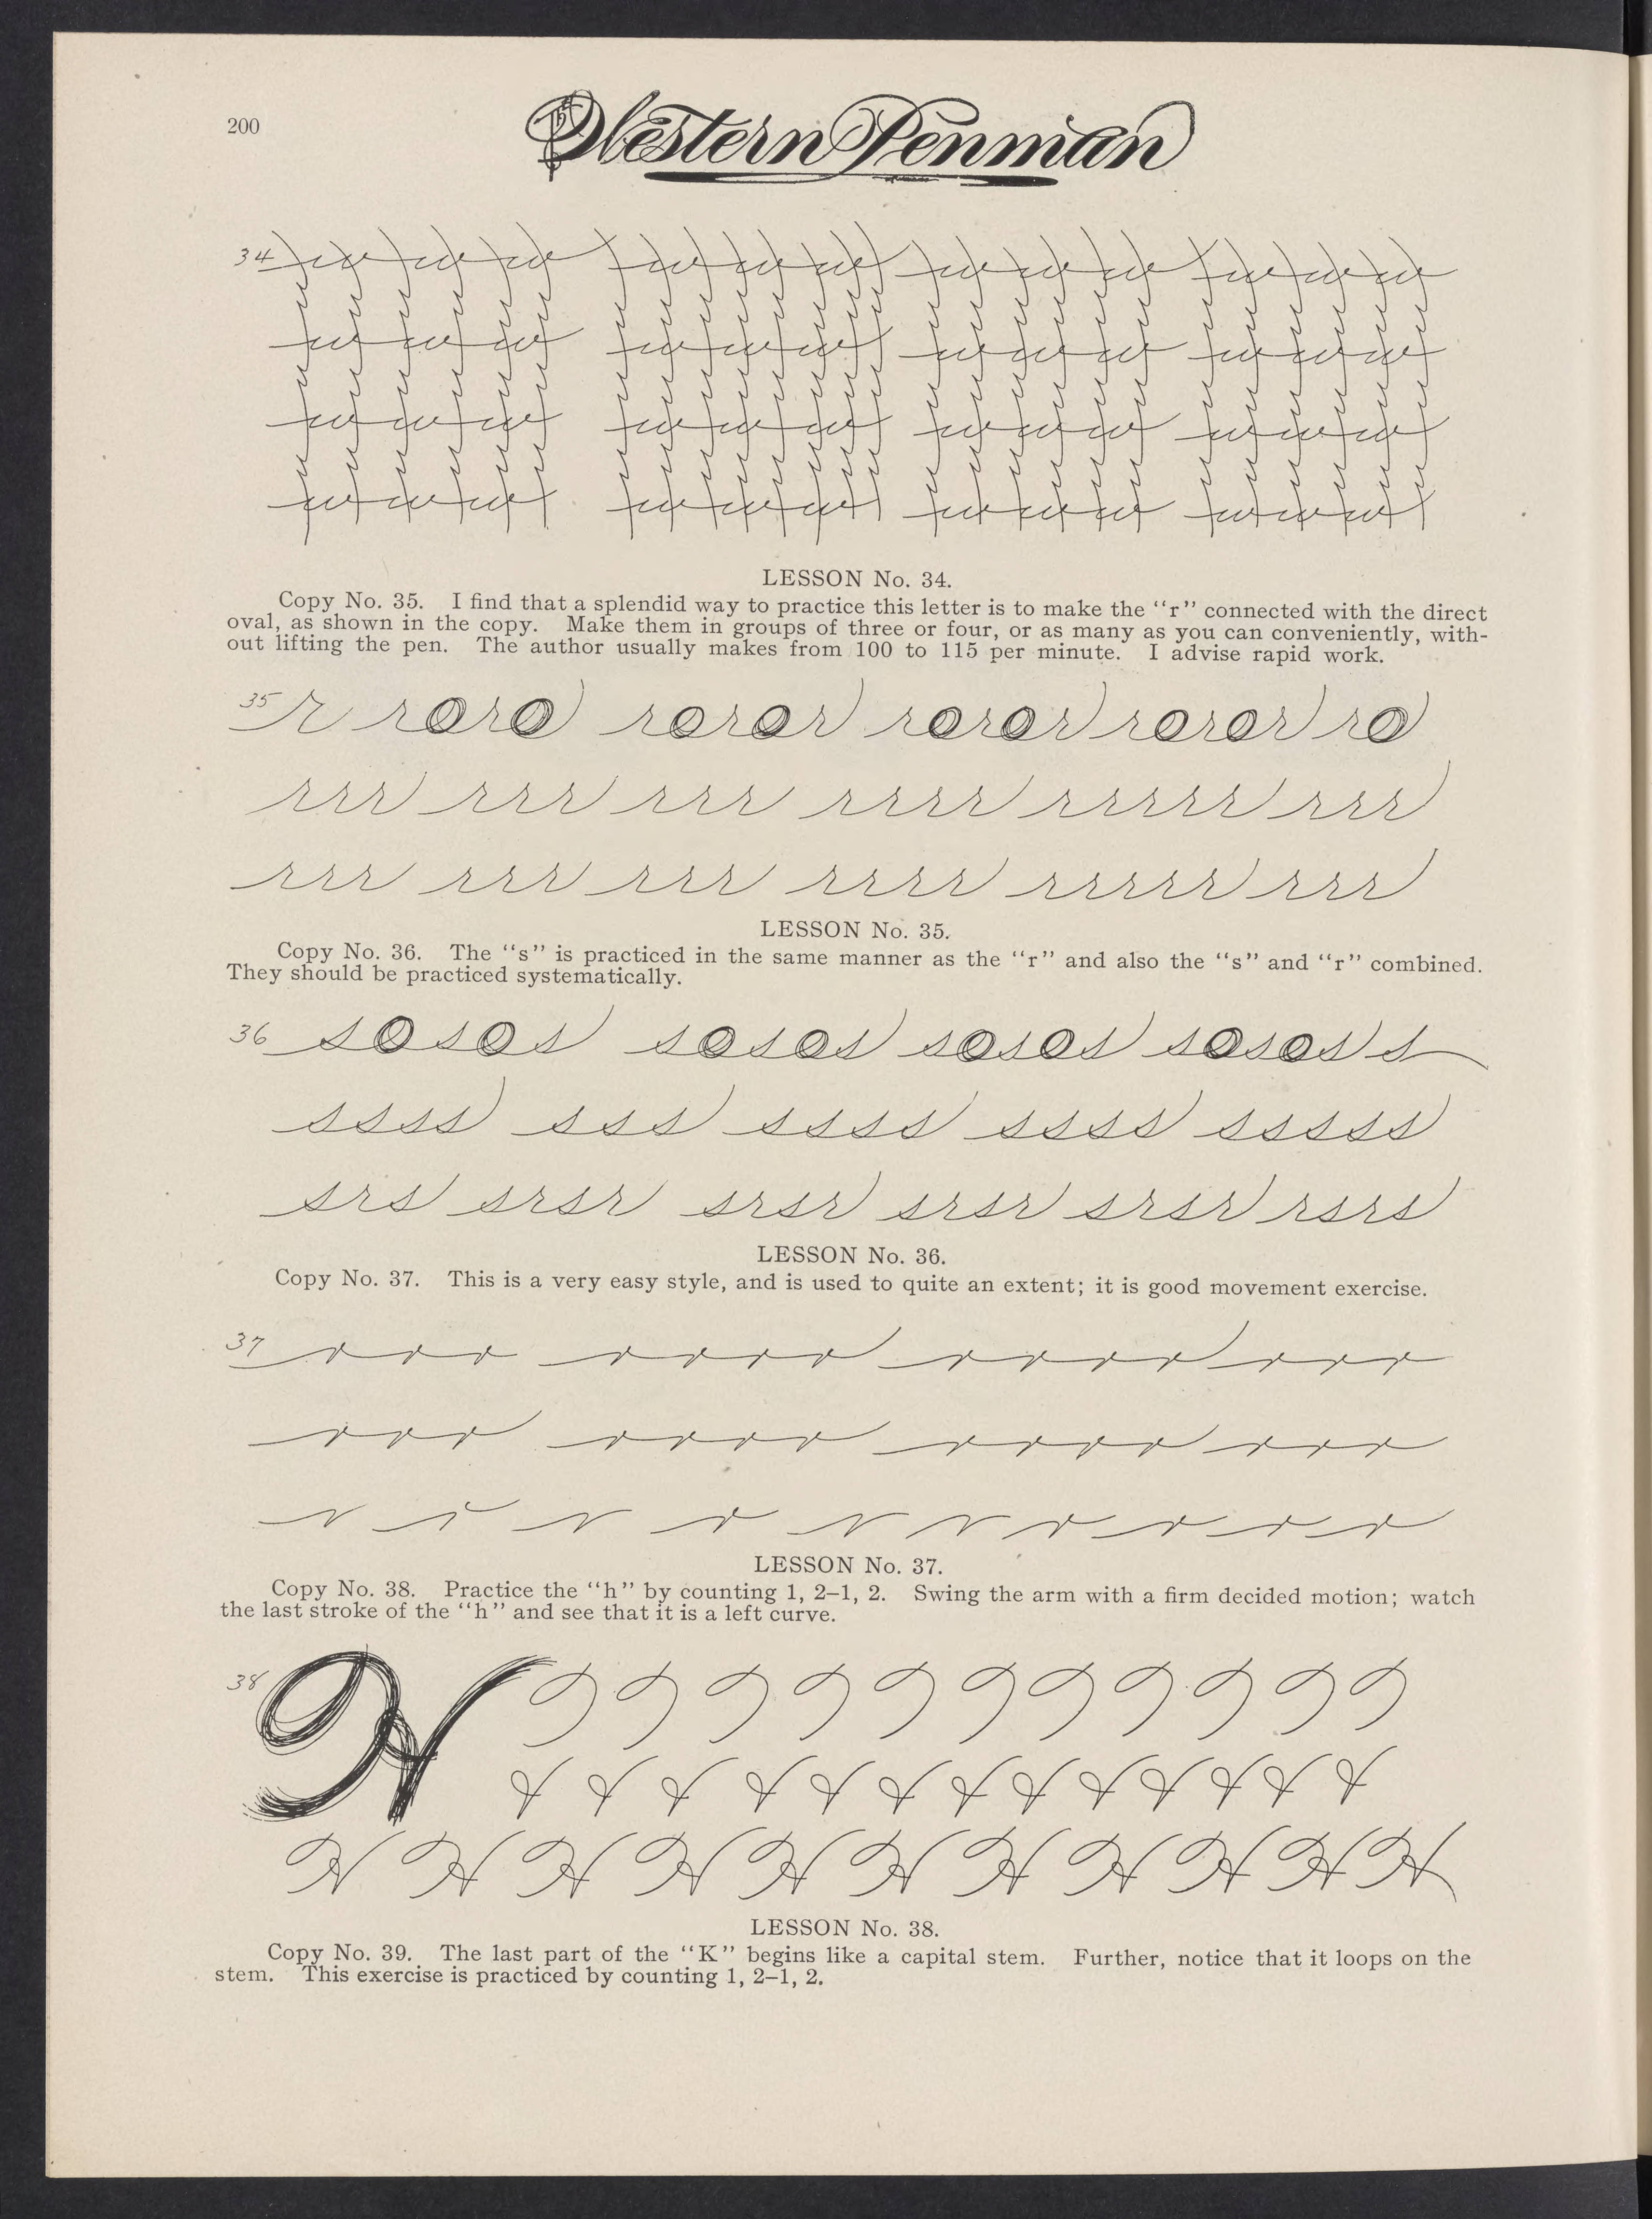 200
Western Penman
34
LESSON No. 34.
Copy No. 35. I find that a splendid way to practice this letter is to make the “r” connected with the direct
oval, as shown in the copy. Make them in groups of three or four, or as many as you can conveniently, with-
out lifting the pen. The author usually makes from 100 to 115 per minute. I advise rapid work.
35 r roro roror roror roror ro
rrr rrr rrr rrrr rrrrr rrr
rrr rrr rrr rrrr rrrrr rrr
LESSON No. 35.
Copy No. 36. The “s” is practiced in the same manner as the “r” and also the “s” and “r” combined.
They should be practiced systematically.
36 sosos sosos sosos sosos s
ssss sss ssss ssss sssss
srs srsr srsr srsr srsr rsrs
LESSON No. 36.
Copy No. 37. This is a very easy style, and is used to quite an extent; it is good movement exercise.
37 rrr rrrr rrrr rrr
rrr rrrr rrrr rrr
r r r r r r r r r r
LESSON No. 37.
Copy No. 38. Practice the “h” by counting 1, 2–1, 2. Swing the arm with a firm decided motion; watch
the last stroke of the “h” and see that it is a left curve.
38 H
H H H H H H H H H H H
LESSON No. 38.
Copy No. 39. The last part of the “K” begins like a capital stem. Further, notice that it loops on the
stem. This exercise is practiced by counting 1, 2–1, 2.